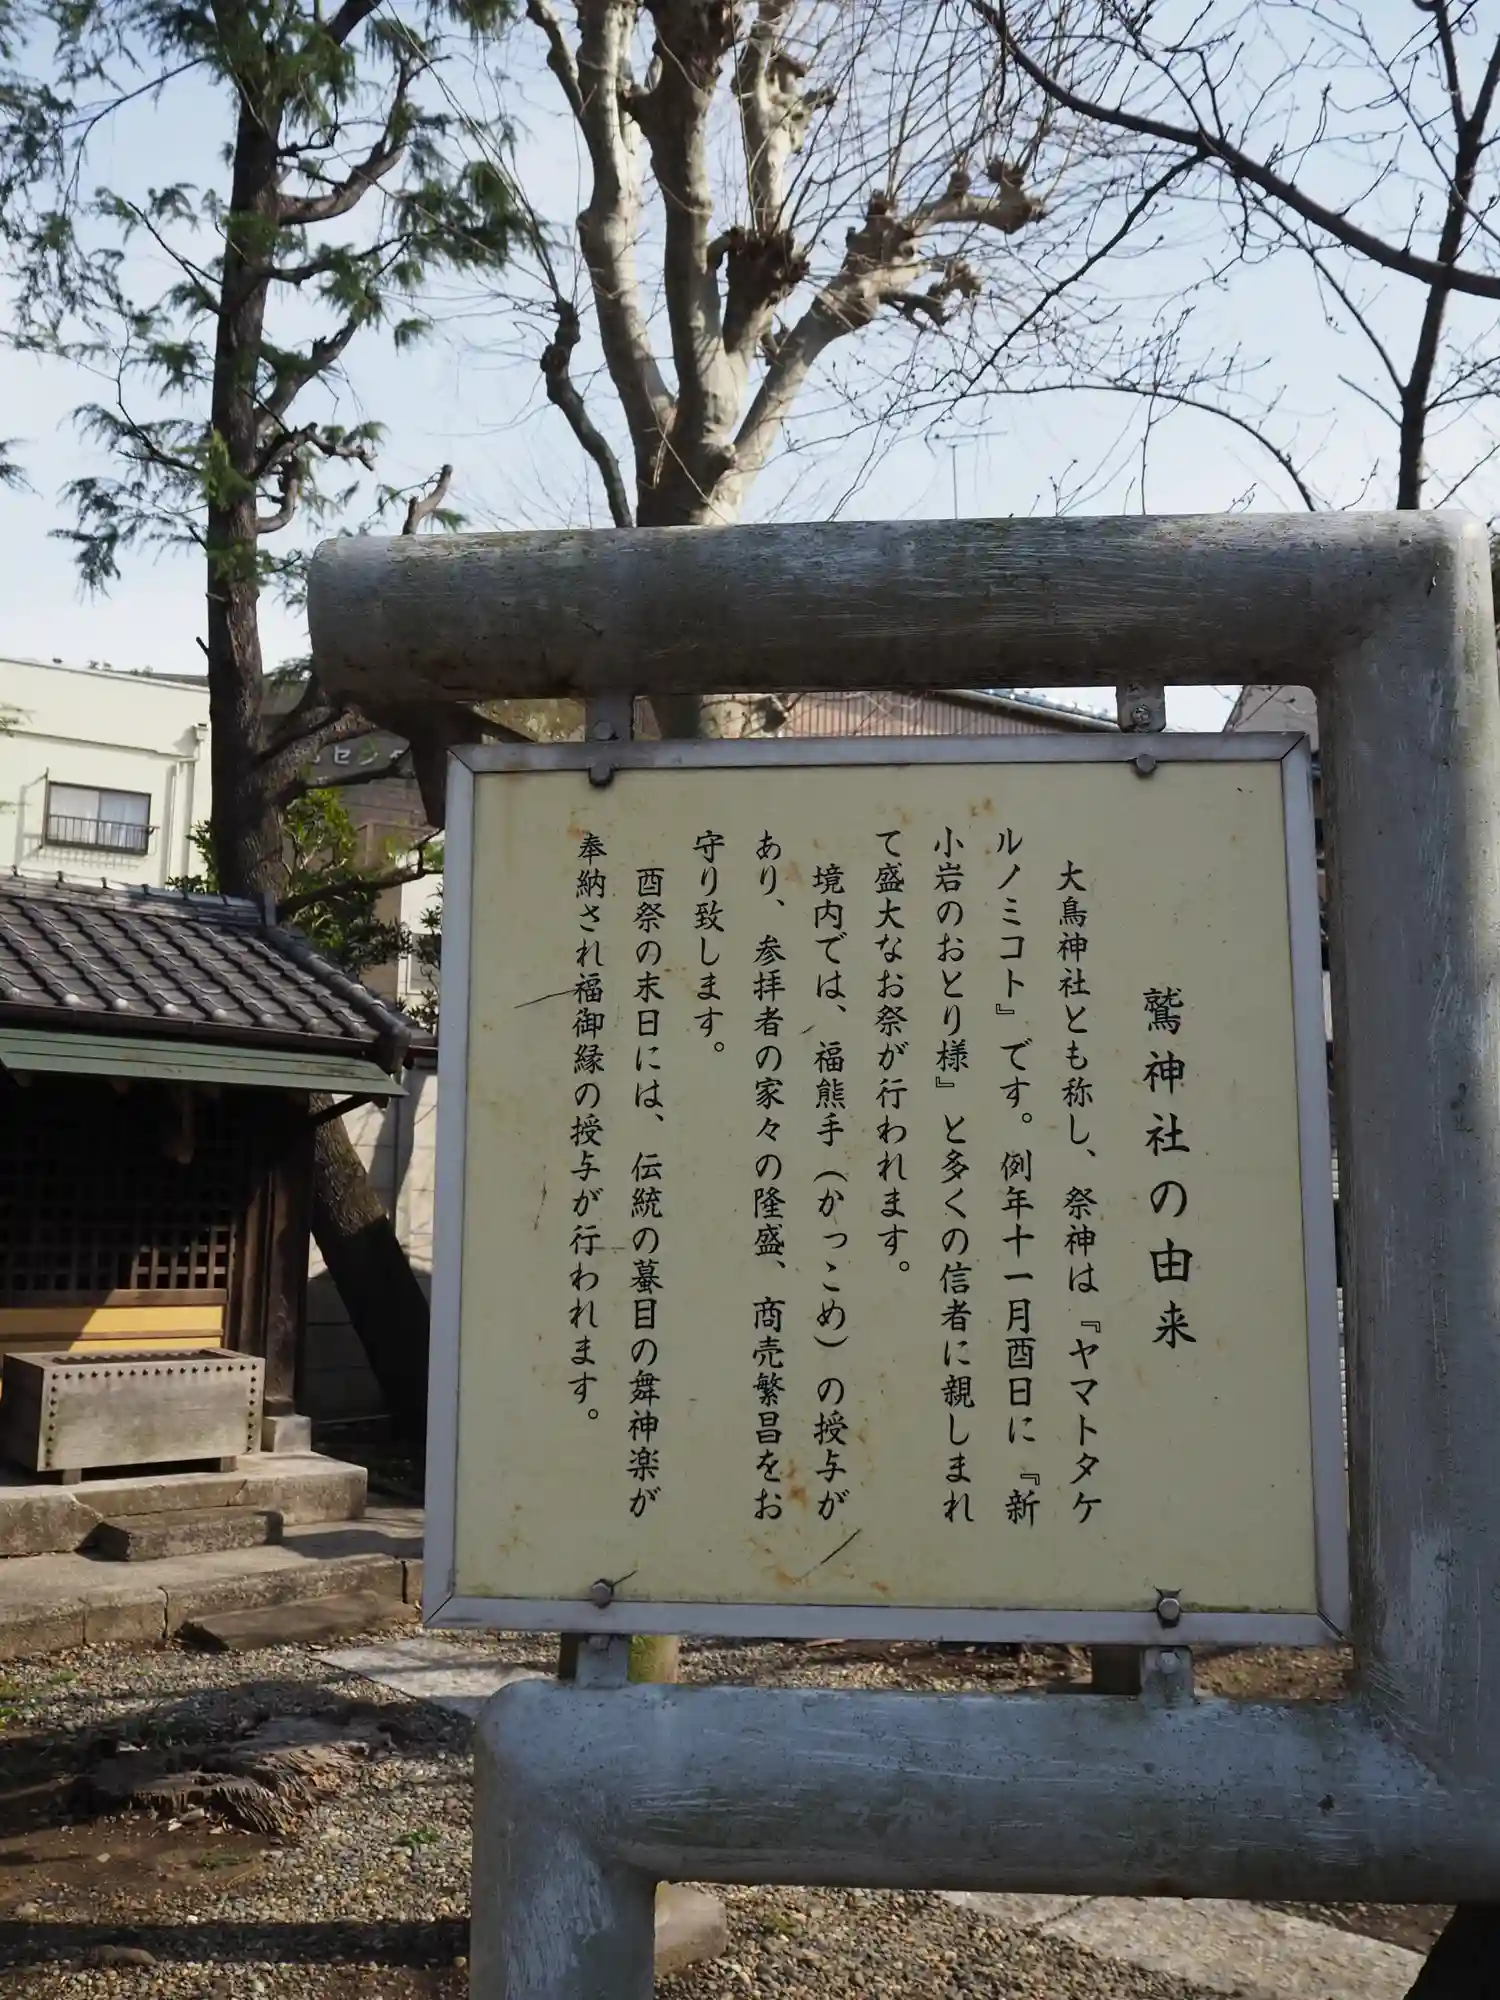 鷲神社の由来
大鳥神社とも称し、祭神は『ヤマトタケ
ルノミコト』です。例年十一月酉日に『新
小岩のおとり様』と多くの信者に親しまれ
て盛大なお祭が行われます。
境内では、福熊手（かっこめ）の授与が
あり、参拝者の家々の隆盛、商売繁昌をお
守り致します。
酉祭の末日には、伝統の蟇目の舞神楽が
奉納され福御縁の授与が行われます。